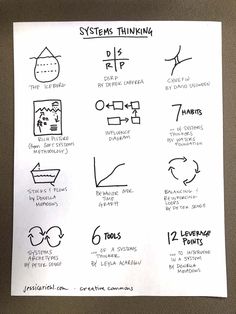 SYSTEMS THINKING
THE ICEBERG
D S
R P
DSRP
BY DEREK CABRERA
CYNEFIN
BY DAVID SNOWDEN
RICH PICTURE
(FROM SOFT SYSTEMS
METHODOLOGY)
INFLUENCE
DIAGRAM
7
HABITS
... OF SYSTEMS
THINKERS
BY WATERS
FOUNDATION
STOCKS & FLOWS
BY DONELLA
MEADOWS
BEHAVIOR OVER
TIME
GRAPH
BALANCING &
REINFORCING
LOOPS
BY PETER SENGE
SYSTEMS
ARCHETYPES
BY PETER SENGE
6
TOOLS
... OF A SYSTEMS
THINKER
BY LEYLA ACAROGLU
12 LEVERAGE
POINTS
... TO INTERVENE
IN A SYSTEM
BY DONELLA
MEADOWS
jessicariehl.com - creative commons